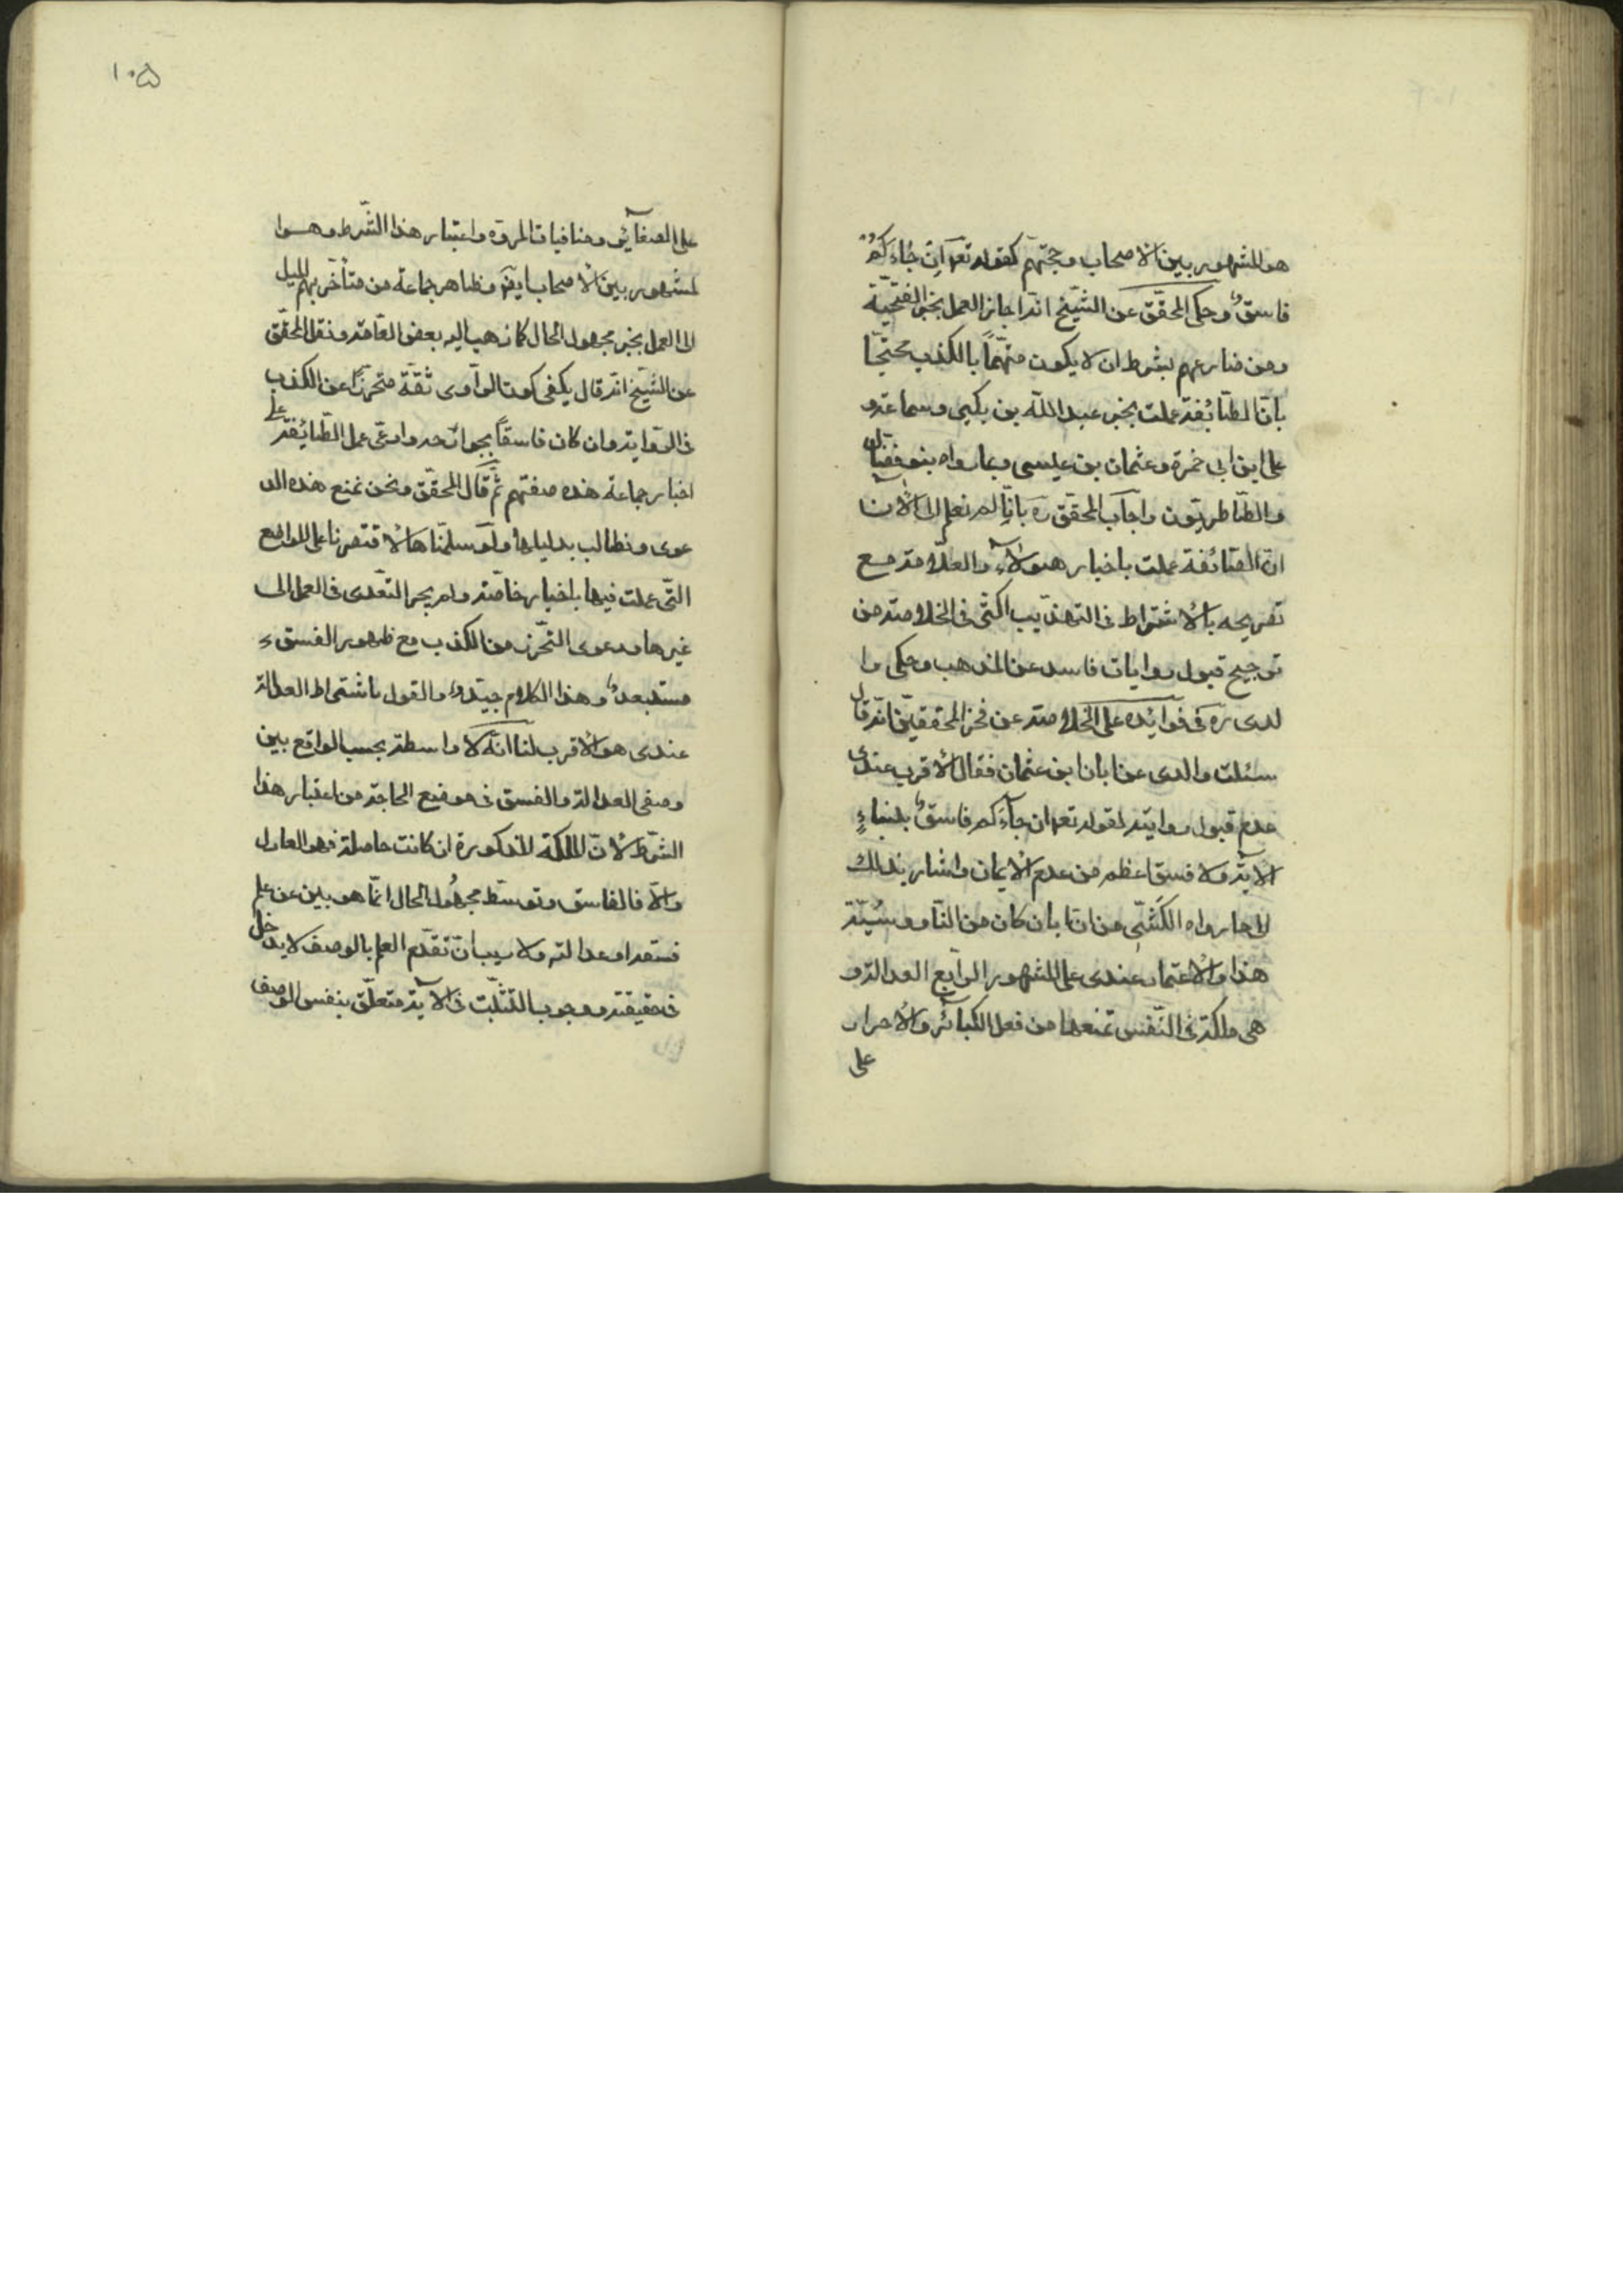 هو المشهور بين الاصحاب وحجتهم كقوله تعہ ان جاءكم
فاسق وحكى المحقق عن الشيخ انه اجاز العمل بخبر الفتحية
ومن ضارعهم بشرط ان لا يكون متهما بالكذب محتجا
بان الطائفة عملت بخبر عبد الله بن بكير وسماعة و
على ابن ابى حمزة وعثمان بن عيسى وبما رواه بنو فضال
والطاطريون واجاب المحقق ره بانا لم نعلم الى الان
ان الطائفة عملت باخبار هؤلاء والعلامة مع
تصريحه بالاشتراط فى التهذيب اكثر فى الخلاصة من
ترجيح قبول روايات فاسد عن المذهب وحكى وا
لدى ره فى فوائده على الخلاصة عن فخر المحققين انه قال
سئلت والدى عن ابان ابن عثمان فقال الاقرب عندى
عدم قبول روايته لقوله تعہ ان جاءكم فاسق بنباء
الاية ولا فسق اعظم من عدم الايمان واشار بذلك
الى ما رواه الكشى من ان ابان كان من الناووسية
هذا والاعتماد عندى على المشهور الرابع العدالة و
هى ملكة فى النفس تمنعها من فعل الكبائر والاصرار
على
١٠٥
على الصغائر ومنافيات المروة واعتبار هذا الشرط وهو ا
لمشهور بين الاصحاب ايضا وظاهر جماعة من متأخريهم الميل
الى العمل بخبر مجهول الحال كما ذهب اليه بعض العامة ونقل المحقق
عن الشيخ انه قال يكفى كون الراوى ثقة متحرزا عن الكذب
فى الرواية وان كان فاسقا بجوارحه وادعى عمل الطائفة على
اخبار جماعة هذه صفتهم ثم قال المحقق ونحن نمنع هذه الد
عوى ونطالب بدليلها ولو سلمناها لاقتصرنا على المواضع
التى عملت فيها باخبار خاصة ولم يجز التعدى فى العمل الى
غيرها ودعوى التحرز من الكذب مع ظهور الفسق
مستبعد وهذا الكلام جيد والقول باشتراط العدالة
عندى هو الاقرب لنا انه لا واسطة بحسب الواقع بين
وصفى العدالة والفسق فى موضع الحاجة من اعتبار هذا
الشرط لان الملكة المذكورة ان كانت حاصلة فهو العادل
والا فالفاسق وتوسط مجهول الحال انما هو بين من علم
فسقه او عدالته ولا ريب ان تقدم العلم بالوصف لا يدخل
فى حقيقته ووجوب التثبت فى الاية متعلق بنفس الوصف